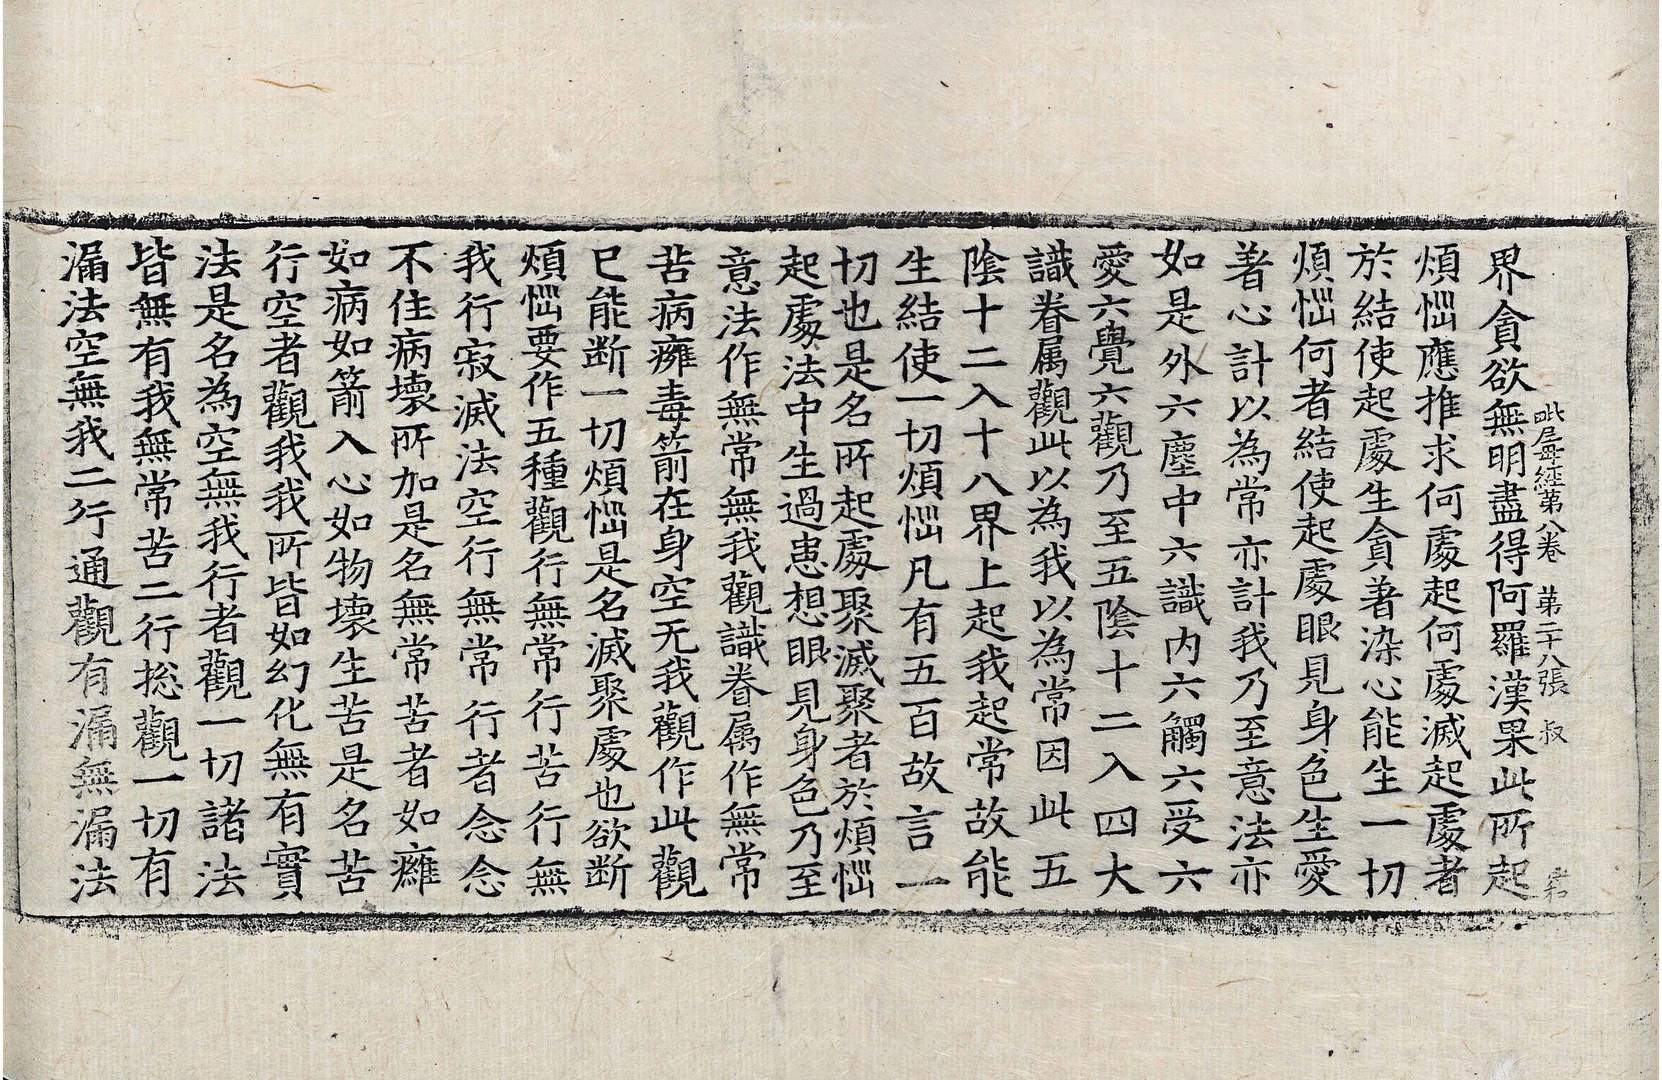 毗尼母經第八卷 第二十八張 叔
界貪欲無明盡得阿羅漢果此所起
煩惱應推求何處起何處滅起處者
於結使起處生貪著染心能生一切
煩惱何者結使起處眼見身色生愛
著心計以為常亦計我乃至意法亦
如是外六塵中六識内六觸六受六
愛六覺六觀乃至五陰十二入四大
識眷属觀此以為我以為常因此五
陰十二入十八界上起我起常故能
生結使一切煩惱凡有五百故言一
切也是名所起處聚滅聚者於煩惱
起處法中生過患想眼見身色乃至
意法作無常無我觀識眷属作無常
苦病癰毒箭在身空无我觀作此觀
已能断一切煩惱是名滅聚處也欲断
煩惱要作五種觀行無常行苦行無
我行寂滅法空行無常行者念念
不住病壊所加是名無常苦者如癰
如病如箭入心如物壊生苦是名苦
行空者觀我我所皆如幻化無有實
法是名為空無我行者觀一切諸法
皆無有我無常苦二行捴觀一切有
漏法空無我二行通觀有漏無漏法